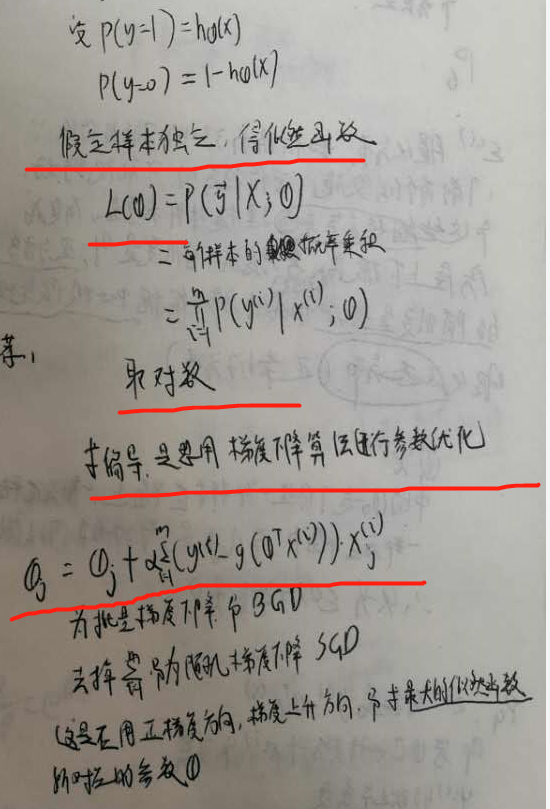 设 P(y=1)=hθ(x)
P(y=0)=1-hθ(x)
假定样本独立,得似然函数
L(θ)=P(y⃗|X;θ)
=每个样本的概率乘积
=∏ᵐᵢ₌₁P(y⁽ⁱ⁾|x⁽ⁱ⁾;θ)
取对数
求偏导,是要用梯度下降算法进行参数优化
θj = θj+α∑ᵐᵢ₌₁(y⁽ⁱ⁾-g(θᵀx⁽ⁱ⁾))·xj⁽ⁱ⁾
为批量梯度下降,即BGD
去掉∑即为随机梯度下降SGD
这是在用正梯度方向,梯度上升方向,即求最大的似然函数
所对应的参数θ